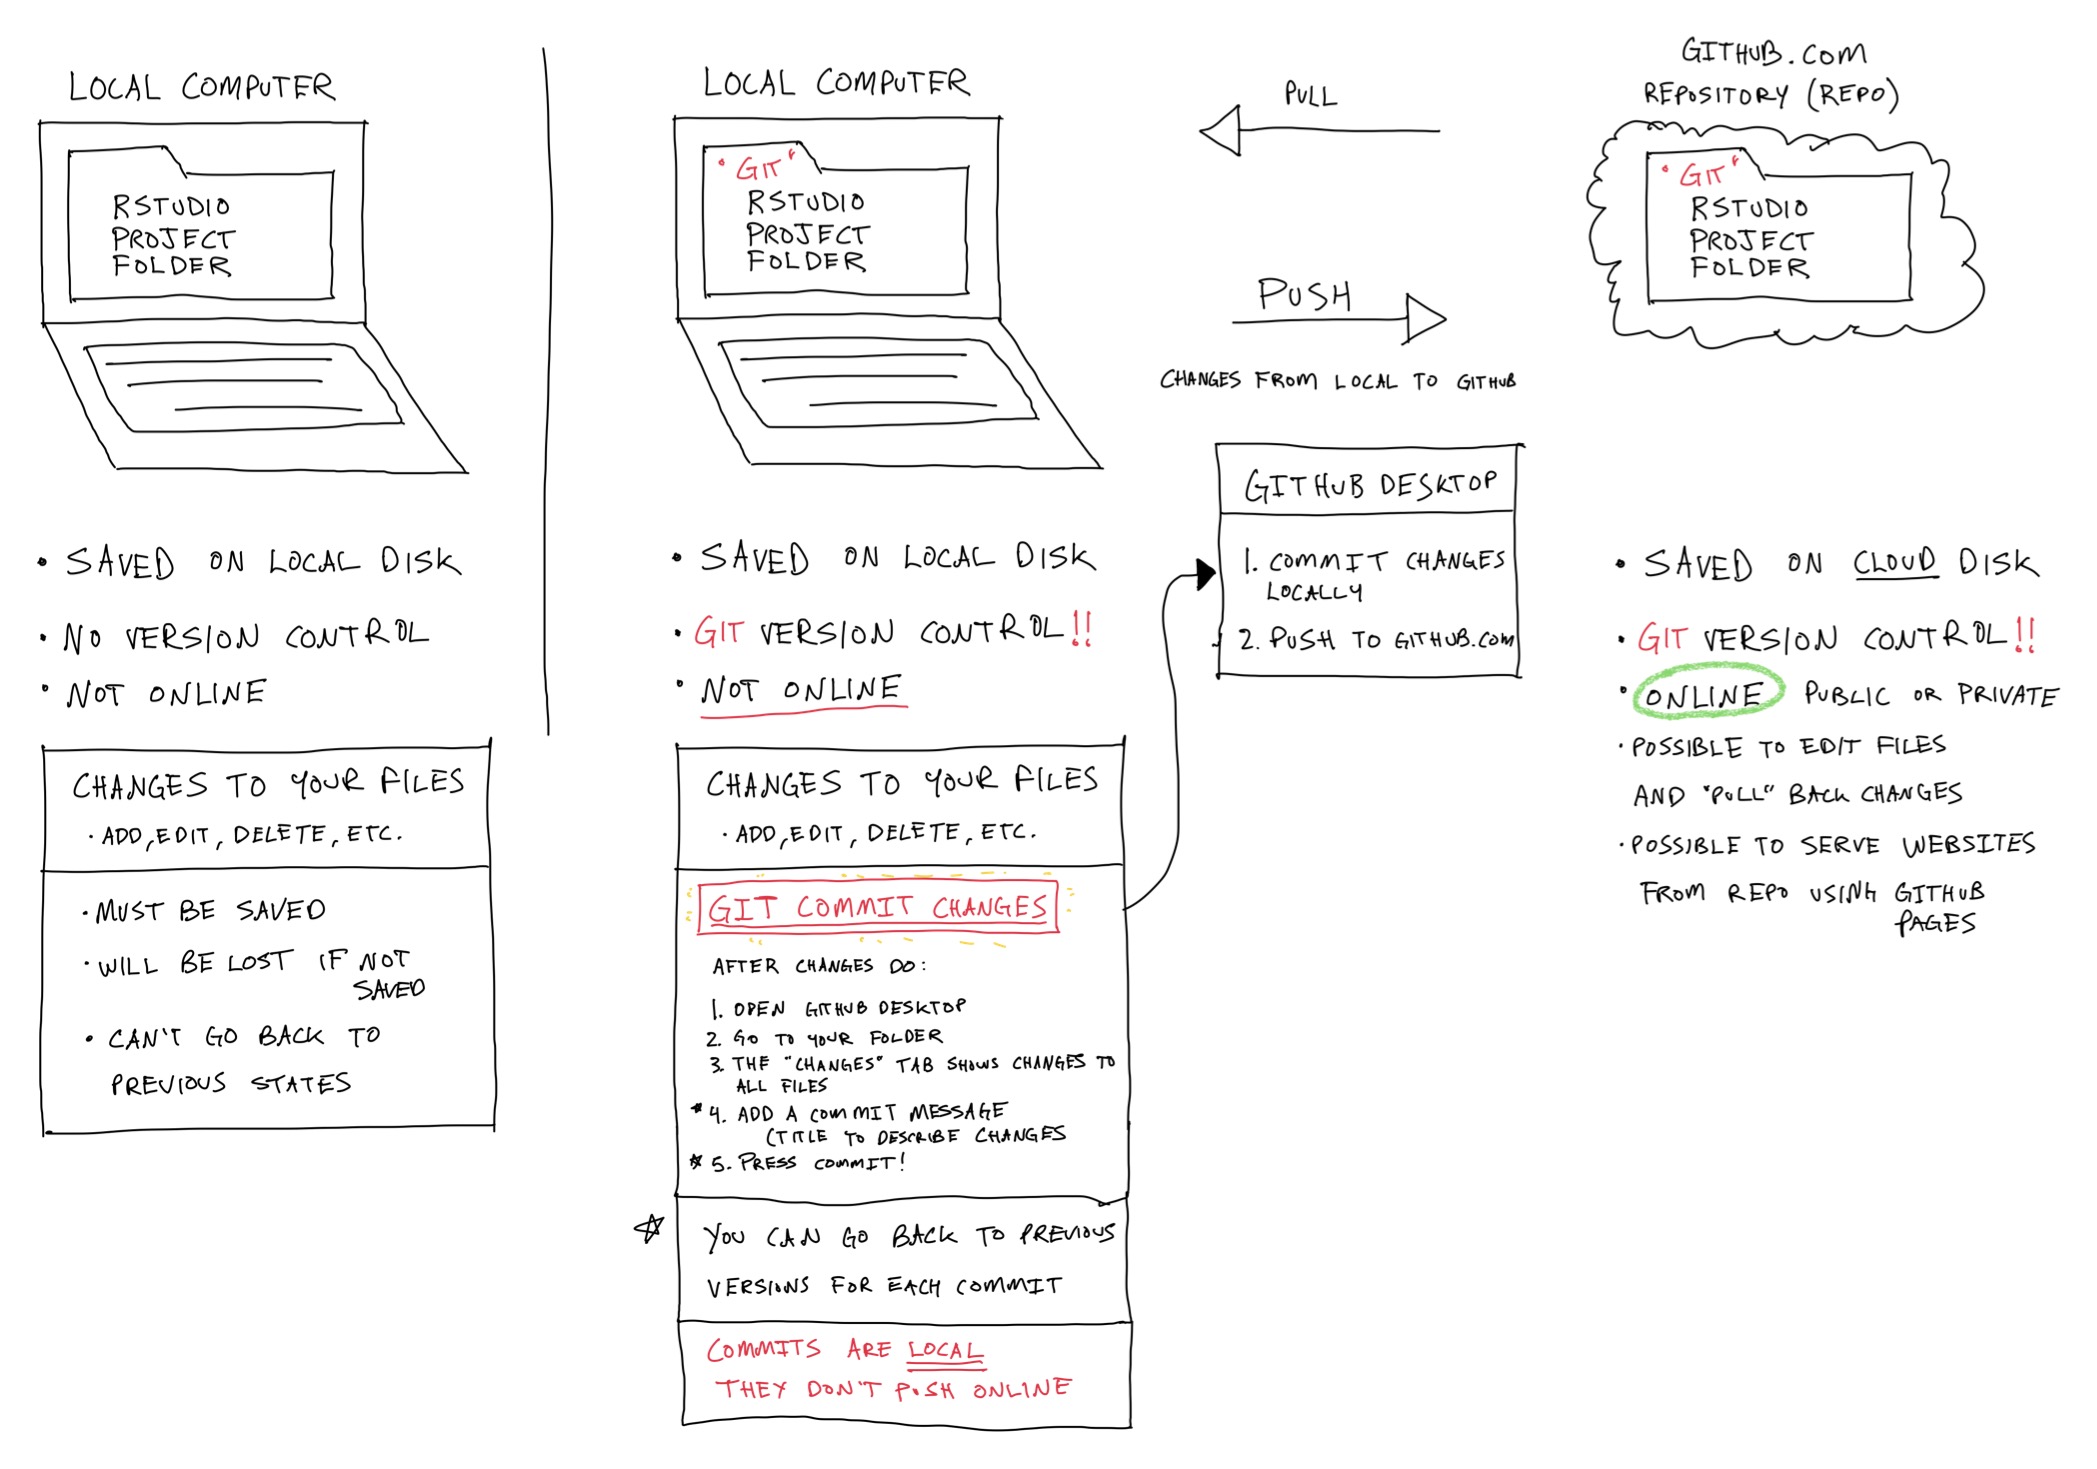 LOCAL COMPUTER
RSTUDIO
PROJECT
FOLDER
• SAVED ON LOCAL DISK
• NO VERSION CONTROL
• NOT ONLINE
CHANGES TO YOUR FILES
• ADD, EDIT, DELETE, ETC.
• MUST BE SAVED
• WILL BE LOST IF NOT
SAVED
• CAN'T GO BACK TO
PREVIOUS STATES
LOCAL COMPUTER
"GIT"
RSTUDIO
PROJECT
FOLDER
• SAVED ON LOCAL DISK
• GIT VERSION CONTROL!!
• NOT ONLINE
CHANGES TO YOUR FILES
• ADD, EDIT, DELETE, ETC.
GIT COMMIT CHANGES
AFTER CHANGES DO:
1. OPEN GITHUB DESKTOP
2. GO TO YOUR FOLDER
3. THE "CHANGES" TAB SHOWS CHANGES TO
ALL FILES
* 4. ADD A COMMIT MESSAGE
(TITLE TO DESCRIBE CHANGES
* 5. PRESS COMMIT!
YOU CAN GO BACK TO PREVIOUS
VERSIONS FOR EACH COMMIT
COMMITS ARE LOCAL
THEY DON'T PUSH ONLINE
PULL
PUSH
CHANGES FROM LOCAL TO GITHUB
GITHUB DESKTOP
1. COMMIT CHANGES
LOCALLY
2. PUSH TO GITHUB.COM
GITHUB.COM
REPOSITORY (REPO)
"GIT"
RSTUDIO
PROJECT
FOLDER
• SAVED ON CLOUD DISK
• GIT VERSION CONTROL!!
• ONLINE PUBLIC OR PRIVATE
• POSSIBLE TO EDIT FILES
AND "PULL" BACK CHANGES
• POSSIBLE TO SERVE WEBSITES
FROM REPO USING GITHUB
PAGES